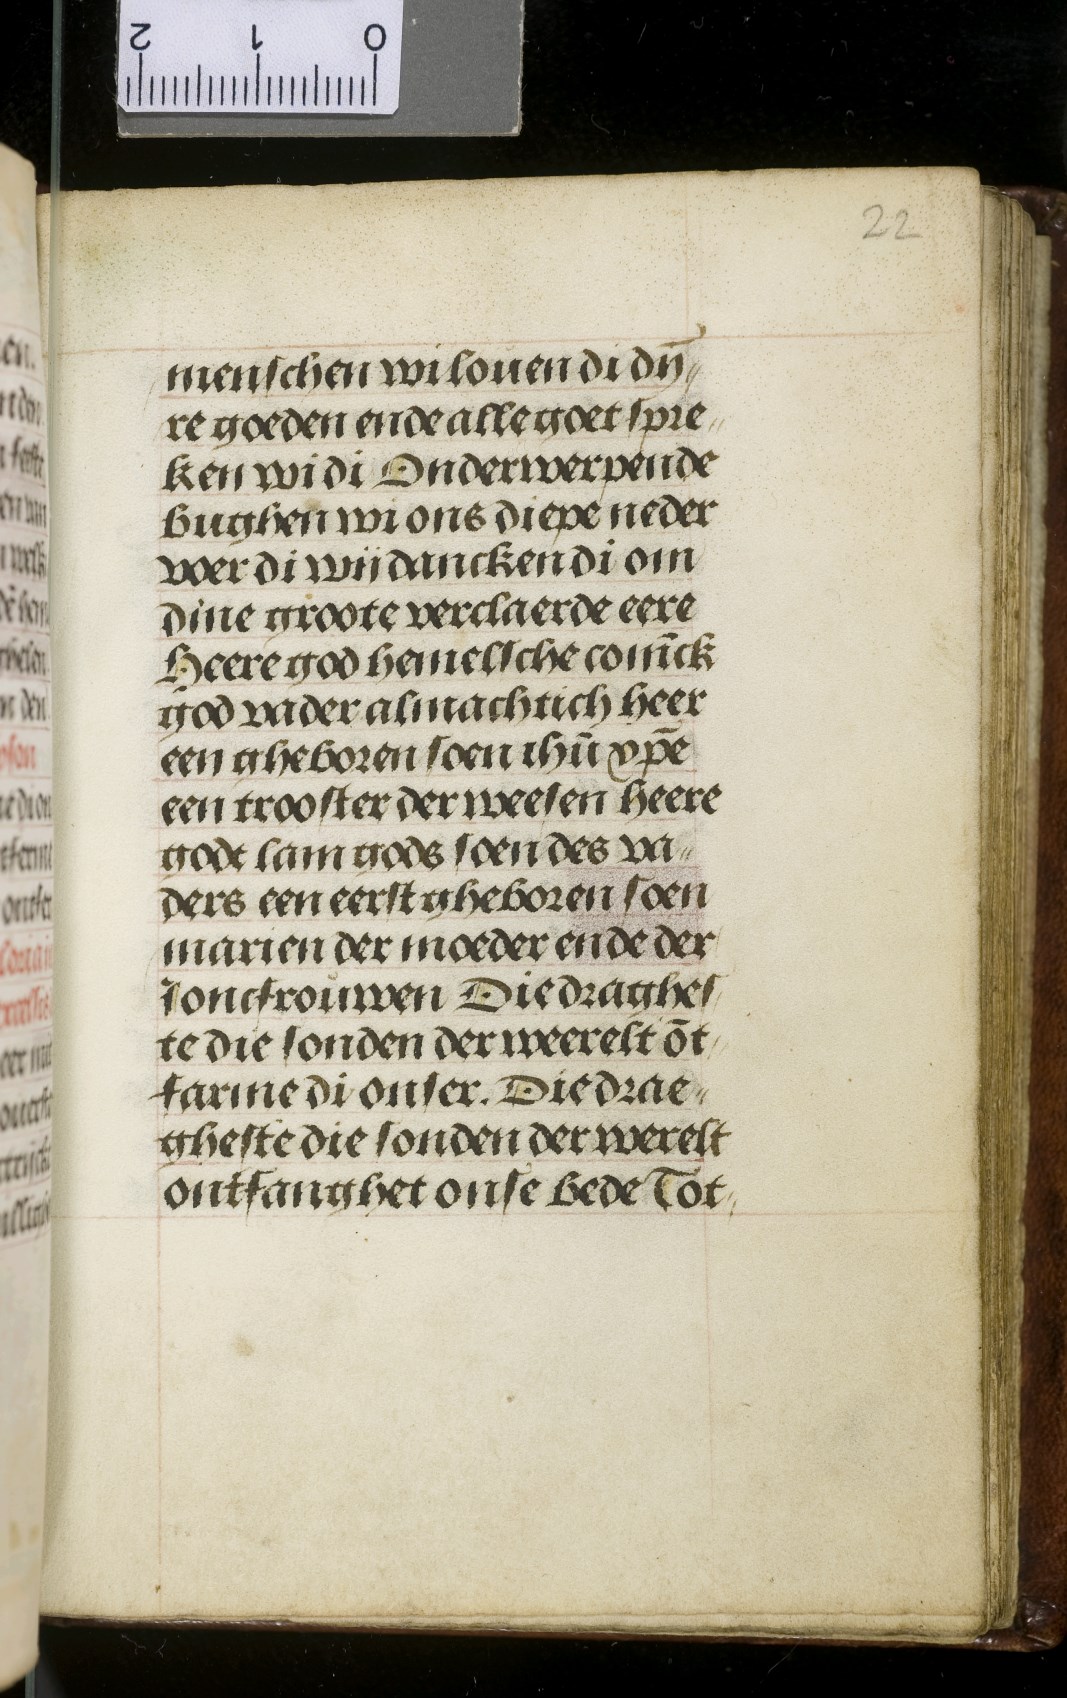 22
menschen wi louen di dÿ„
re goeden ende alle goet spre„
ken wi di Onderwerpende
bughen wi ons diepe neder
voer di wij dancken di om
dine groote verclaerde eere
Heere god hemelsche conīck
god vader almachtich heer
een gheboren soen ihū xp̄e
een trooster der weesen heere
godt lam gods soen des va„
ders een eerst gheboren soen
marien der moeder ende der
Joncfrouwen Die draghes
te die sonden der weerelt ōt„
farme di onser. Die drae„
gheste die sonden der werelt
ontfanghet onse bede Tot„